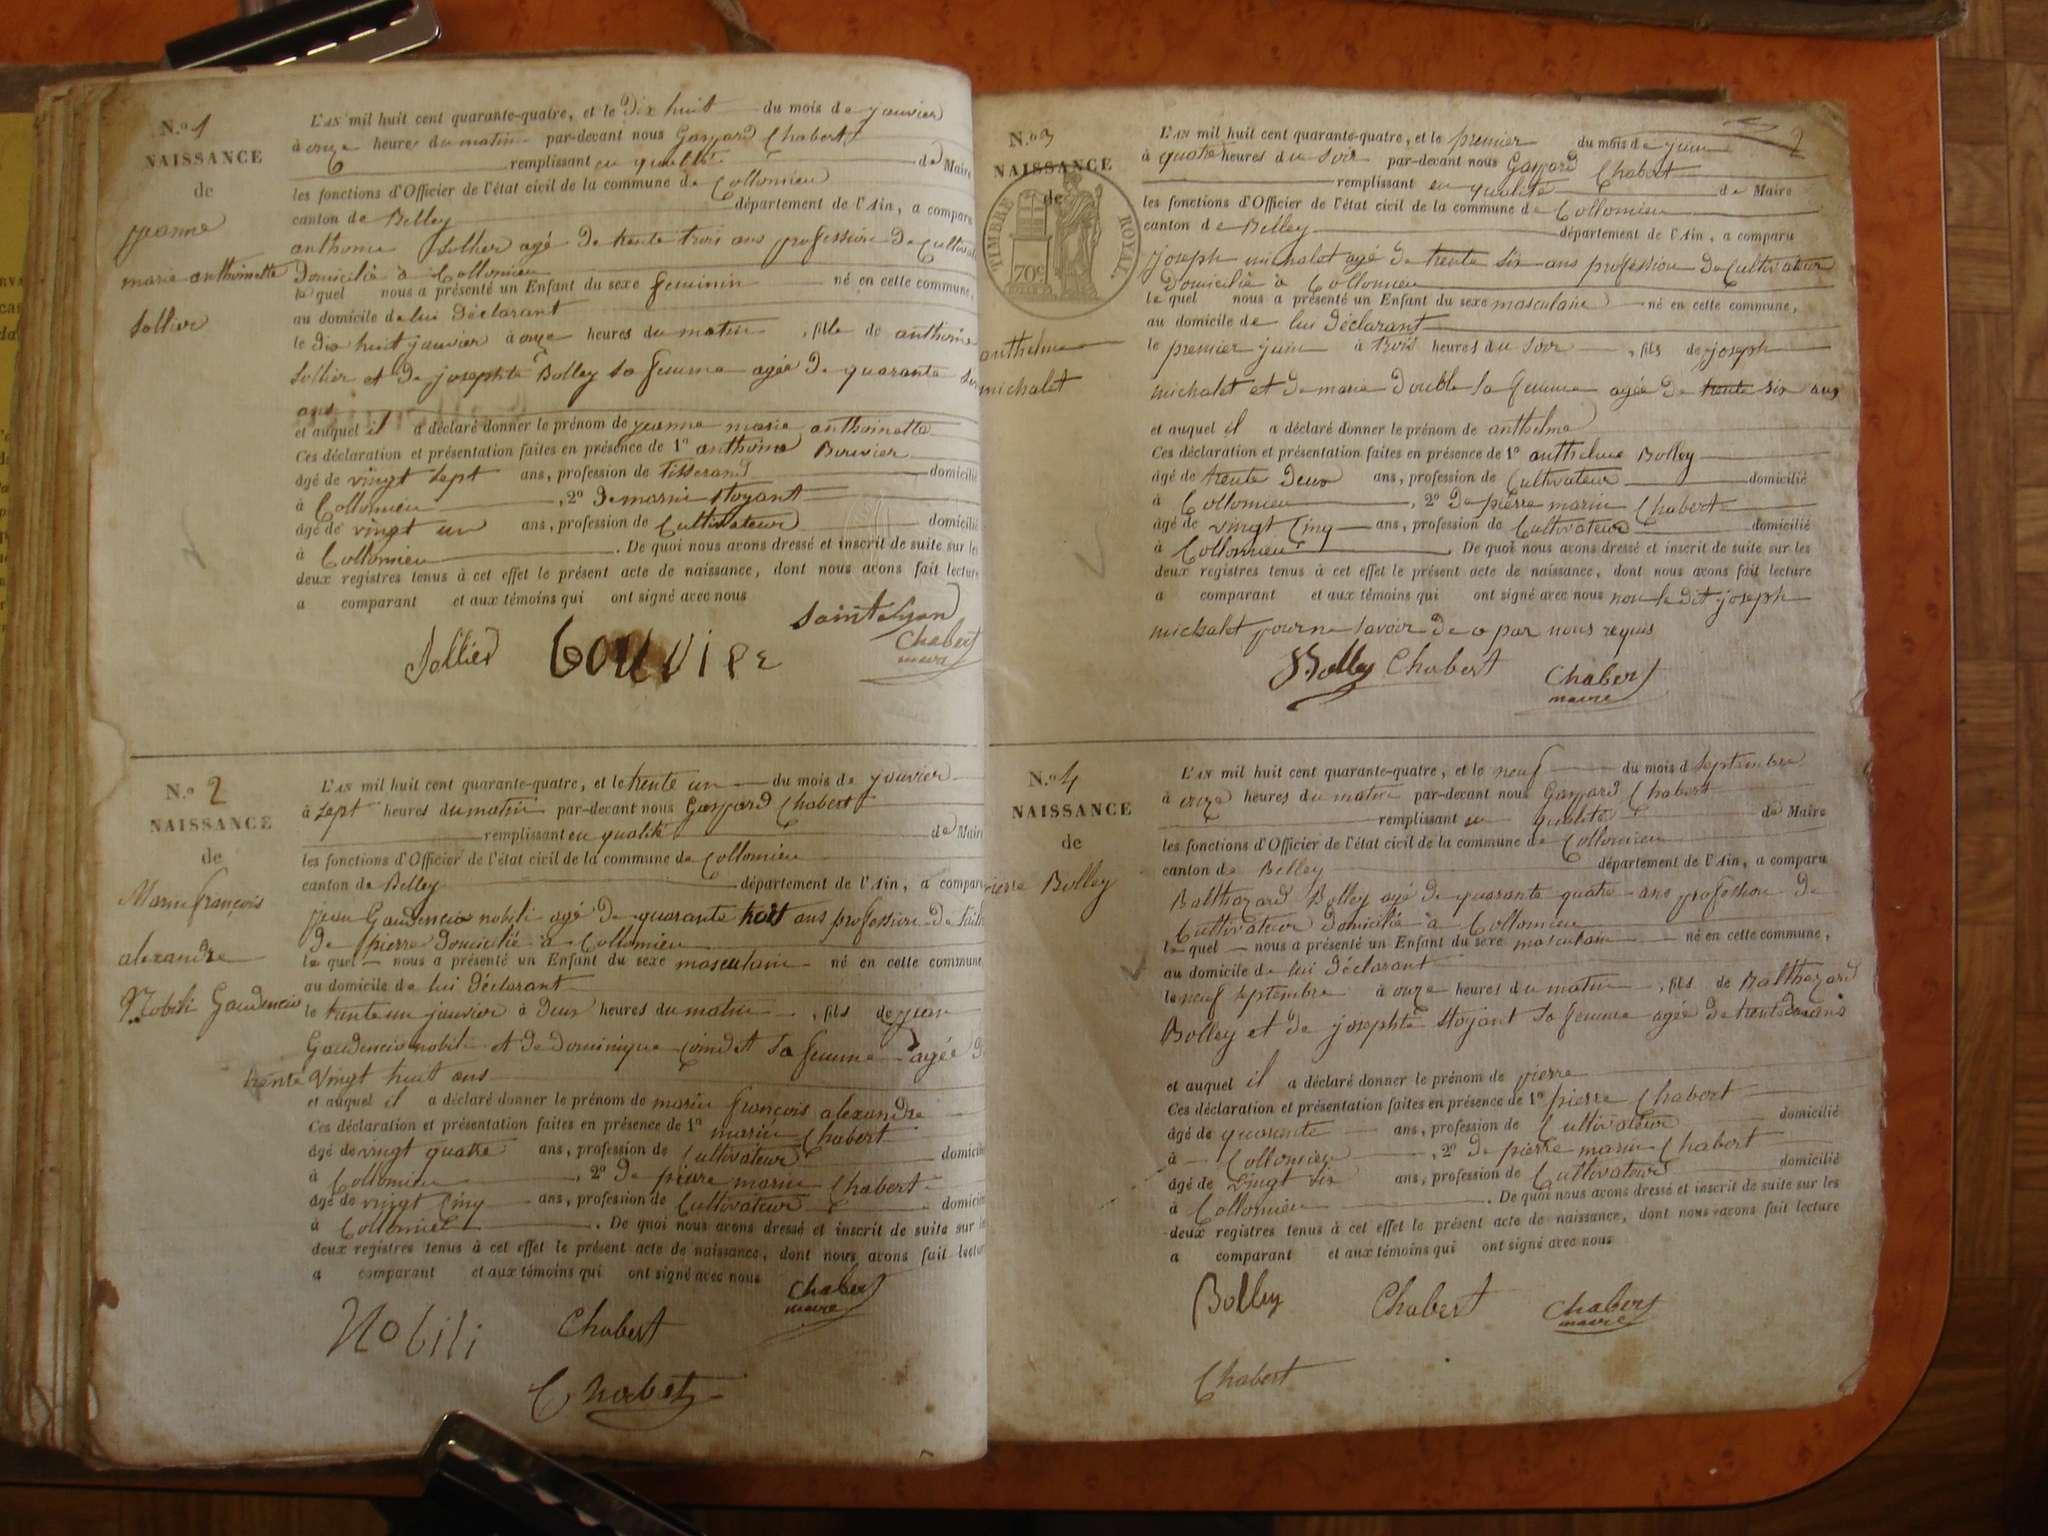 N.o 1
NAISSANCE
de
jeanne
marie anthoinette
Sollier
L'AN mil huit cent quarante-quatre, et le Dix huit du mois de janvier
à onze heures du matin par-devant nous Gaspard Chabert
remplissant en qualité de Maire
les fonctions d'Officier de l'état civil de la commune de Collomieu
canton de Belley département de l'Ain, a comparu
anthoine Sollier agé de trente trois ans profession de Cultivat
Domicilié à Collomieu
le quel nous a présenté un Enfant du sexe feminin né en cette commune,
au domicile de lui Déclarant
le Dix huit janvier à onze heures du matin, fille de anthoine
Sollier et de josephte Bolley sa femme agée de quarante six
ans
et auquel il a déclaré donner le prénom de jeanne marie anthoinette
Ces déclaration et présentation faites en présence de 1o anthoine Bouvier
âgé de vingt sept ans, profession de tisserand domicilié
à Collomieu, 2o De marin Stoyant
âgé de vingt un ans, profession de Cultivateur domicilié
à Collomieu. De quoi nous avons dressé et inscrit de suite sur les
deux registres tenus à cet effet le présent acte de naissance, dont nous avons fait lecture
a comparant et aux témoins qui ont signé avec nous
Sollier bouvier
Chabert
maire
N.o 2
NAISSANCE
de
Marin françois
alexandre
Nobili Gaudencio
L'AN mil huit cent quarante-quatre, et le trente un du mois de janvier
à sept heures du matin par-devant nous Gaspard Chabert
remplissant en qualité de Maire
les fonctions d'Officier de l'état civil de la commune de Collomieu
canton de Belley département de l'Ain, a comparu
jean Gaudencio nobili agé de quarante huit ans profession de taille
De pierre Domicilié à Collomieu
le quel nous a présenté un Enfant du sexe masculain né en cette commune
au domicile de lui déclarant
le trente un janvier à Deux heures du matin, fils de jean
Gaudencio nobili et de Dominique Coindet sa femme agée de
trente vingt huit ans
et auquel il a déclaré donner le prénom de marin françois alexandre
Ces déclaration et présentation faites en présence de 1o marin Chabert
âgé de vingt quatre ans, profession de Cultivateur domicilié
à Collomieu, 2o De pierre marin Chabert
âgé de vingt Cinq ans, profession de Cultivateur domicilié
à Collomieu. De quoi nous avons dressé et inscrit de suite sur les
deux registres tenus à cet effet le présent acte de naissance, dont nous avons fait lecture
a comparant et aux témoins qui ont signé avec nous
Chabert
maire
Nobili Chabert
Chabert
2
N.o 3
NAISSANCE
de
TIMBRE ROYAL.
70c
anthelme
michalet
L'AN mil huit cent quarante-quatre, et le premier du mois de juin
à quatre heures du soir par-devant nous Gaspard Chabert
remplissant en qualité de Maire
les fonctions d'Officier de l'état civil de la commune de Collomieu
canton de Belley département de l'Ain, a comparu
joseph michalet agé de trente six ans profession De Cultivateur
Domicilié à Collomieu
le quel nous a présenté un Enfant du sexe masculain né en cette commune,
au domicile de lui déclarant
le premier juin à trois heures du soir, fils de joseph
michalet et de marie Double sa femme agée de trente six ans
et auquel il a déclaré donner le prénom de anthelme
Ces déclaration et présentation faites en présence de 1o anthelme Bolley
âgé de trente Deux ans, profession de Cultivateur domicilié
à Collomieu, 2o De pierre marin Chabert
âgé de vingt Cinq ans, profession de Cultivateur domicilié
à Collomieu. De quoi nous avons dressé et inscrit de suite sur les
deux registres tenus à cet effet le présent acte de naissance, dont nous avons fait lecture
a comparant et aux témoins qui ont signé avec nous non le dit joseph
michalet pour ne savoir de ce par nous requis
Bolley Chabert Chabert
maire
N.o 4
NAISSANCE
de
pierre Bolley
L'AN mil huit cent quarante-quatre, et le neuf du mois d septembre
à onze heures du matin par-devant nous Gaspard Chabert
remplissant en qualité de Maire
les fonctions d'Officier de l'état civil de la commune de Collomieu
canton de Belley département de l'Ain, a comparu
Balthazard Bolley agé de quarante quatre ans profession de
Cultivateur Domicilié à Collomieu
le quel nous a présenté un Enfant du sexe masculain né en cette commune,
au domicile de lui déclarant
le neuf septembre à onze heures du matin, fils de Balthazard
Bolley et de josephte Stoyant sa femme agée de trente ans
et auquel il a déclaré donner le prénom de pierre
Ces déclaration et présentation faites en présence de 1o pierre Chabert
âgé de quarente ans, profession de Cultivateur domicilié
à Collomieu, 2o De pierre marin Chabert
âgé de vingt six ans, profession de Cultivateur domicilié
à Collomieu. De quoi nous avons dressé et inscrit de suite sur les
deux registres tenus à cet effet le présent acte de naissance, dont nous avons fait lecture
a comparant et aux témoins qui ont signé avec nous
Bolley Chabert Chabert
maire
Chabert